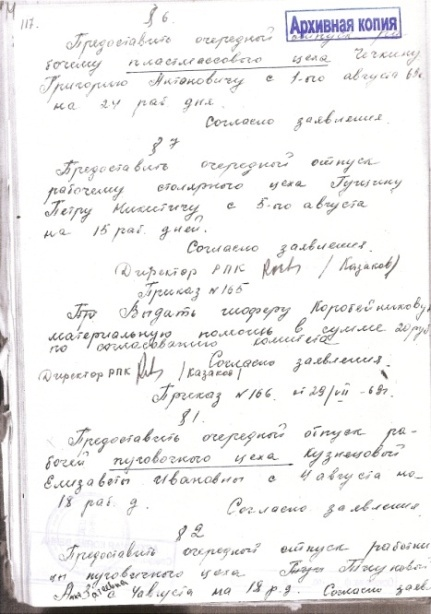 117.
§ 6.
Архивная копия
Предоставить очередной отпуск ра-
бочему пластмассового цеха Чечкину
Григорию Антоновичу с 1-го августа 69 г.
на 24 раб. дня.
Согласно заявления.
§ 7
Предоставить очередной отпуск
рабочему столярного цеха Гущину
Петру Никитичу с 5-го августа
на 15 раб. дней.
Согласно заявления.
Директор РПК /Казаков/
Приказ № 165
Выдать шоферу Коробейникову
материальную помощь в сумме 20 руб
по согласованию комитета
Согласно заявления.
Директор РПК /Казаков/
Приказ № 166. от 29/VII-69г.
§ 1.
Предоставить очередной отпуск ра-
бочей пуговочного цеха Кузнецовой
Елизаветы Ивановны с 4 августа на
18 раб. д.
Согласно заявления
§ 2
Предоставить очередной отпуск работни
це пуговичного цеха
Анне с 4 августа на 18 р.д. Согласно заяв.